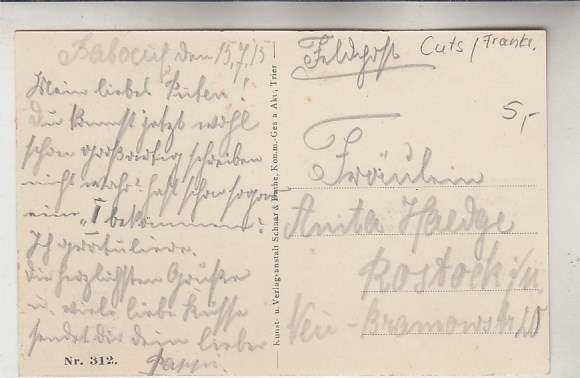 den 15.7.15
Mein liebes !
Du kannst jetzt wohl
schon großartig schreiben
nicht wahr? hast schon sogar
eine „I bekommen?
Ich gratuliere.
Die herzlichsten Grüße
u. viele liebe Küsse
sendet dir dein lieber
Pappi.
Nr. 312.
Kunst- u. Verlagsanstalt Schaar & Dathe, Komm.-Ges a Akt., Trier
Feldpost
Cuts / Frankr.
5,-
Fräulein
Anita
Rostock i/M